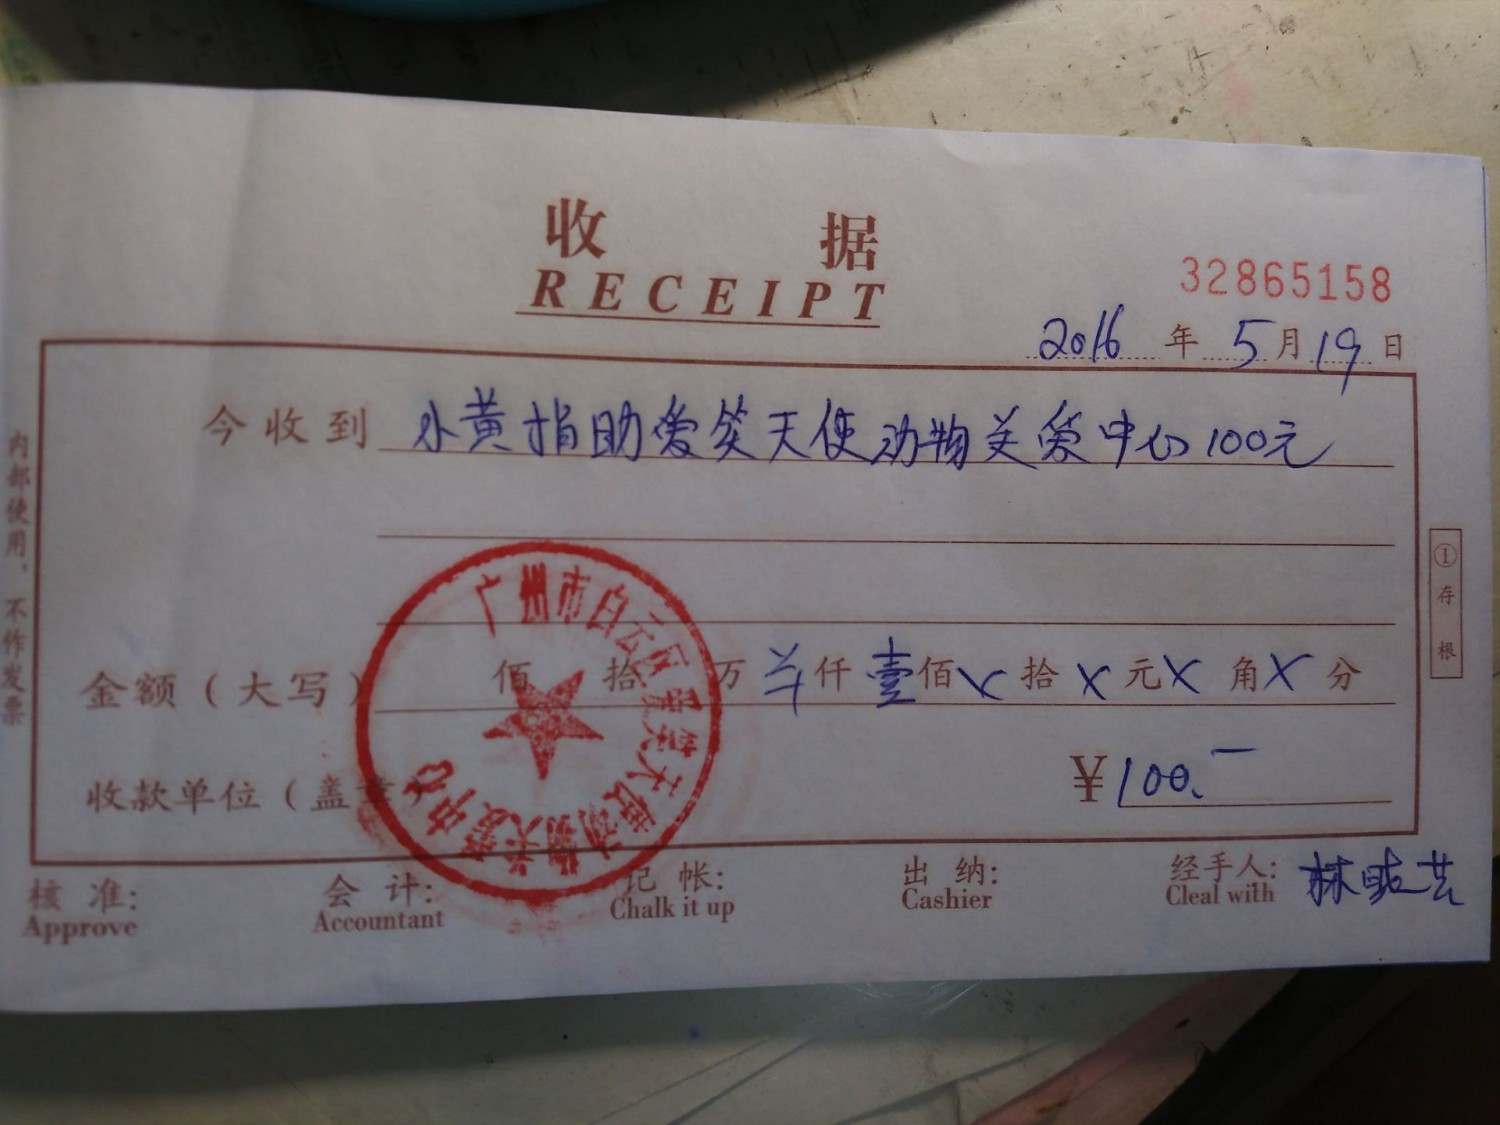 收 据
RECEIPT
32865158
2016 年 5 月 19 日
今收到 小黄捐助爱笑天使动物关爱中心100元
金额（大写） 佰 拾 万 羊 仟 壹 佰 X 拾 X 元 X 角 X 分
收款单位（盖章）
¥100.—
广州市白云区爱笑天使动物关爱中心
核 准: 会 计: 记 帐: 出 纳: 经手人: 林
Approve Accountant Chalk it up Cashier Cleal with
内部使用，不作发票
① 存根